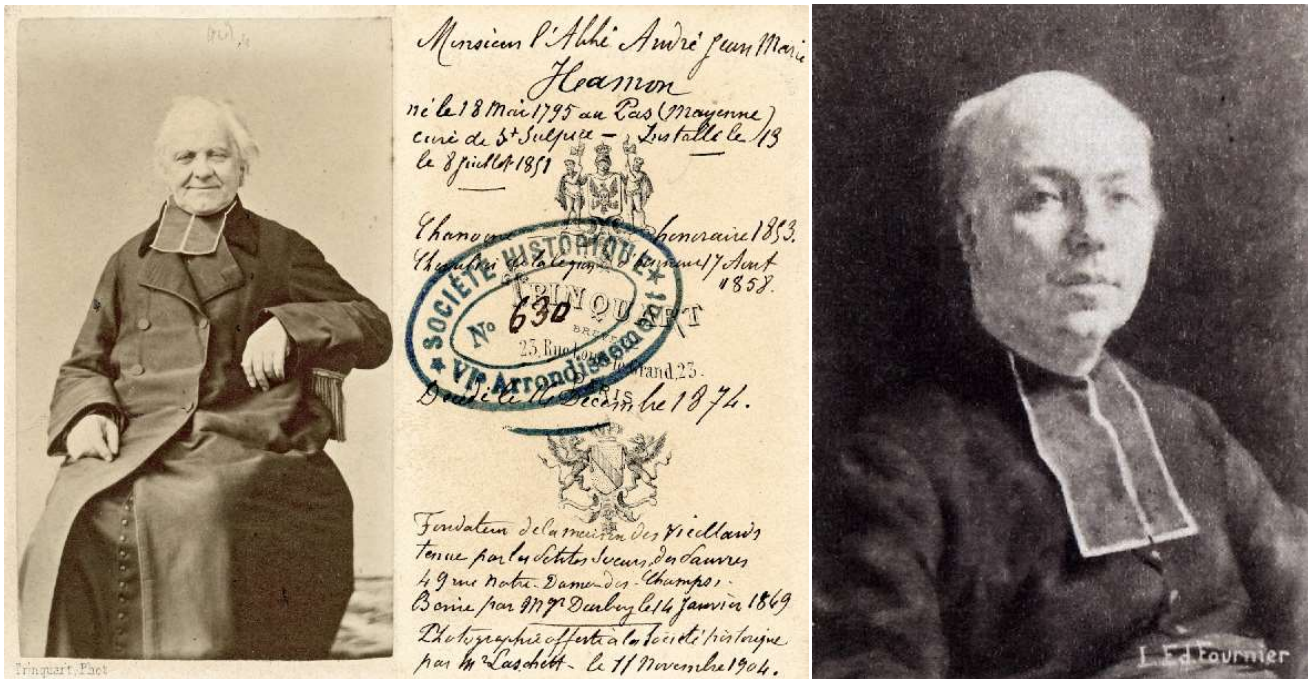 Monsieur l'Abbé André Jean Marie
Hamon
né le 18 Mai 1795 au Pas (Mayenne)
curé de St Sulpice – Installé le 13
le 8 juillet 1851
honoraire 1853.
17 Aout
1858.
SOCIÉTÉ HISTORIQUE
VIe Arrondissement
No 630
TRINQUART
23, Rue Louis le Grand, 23.
PARIS
Décédé le 16 Décembre 1874.
Fondateur de la maison des Vieillards
tenue par les petites Soeurs des Pauvres
49 rue Notre-Dame-des-Champs.
Bénie par Mgr Darboy le 14 Janvier 1869
Photographie offerte à la Société historique
par Mr Laschett - le 11 Novembre 1904.
Trinquart, Phot
L. Ed. Fournier